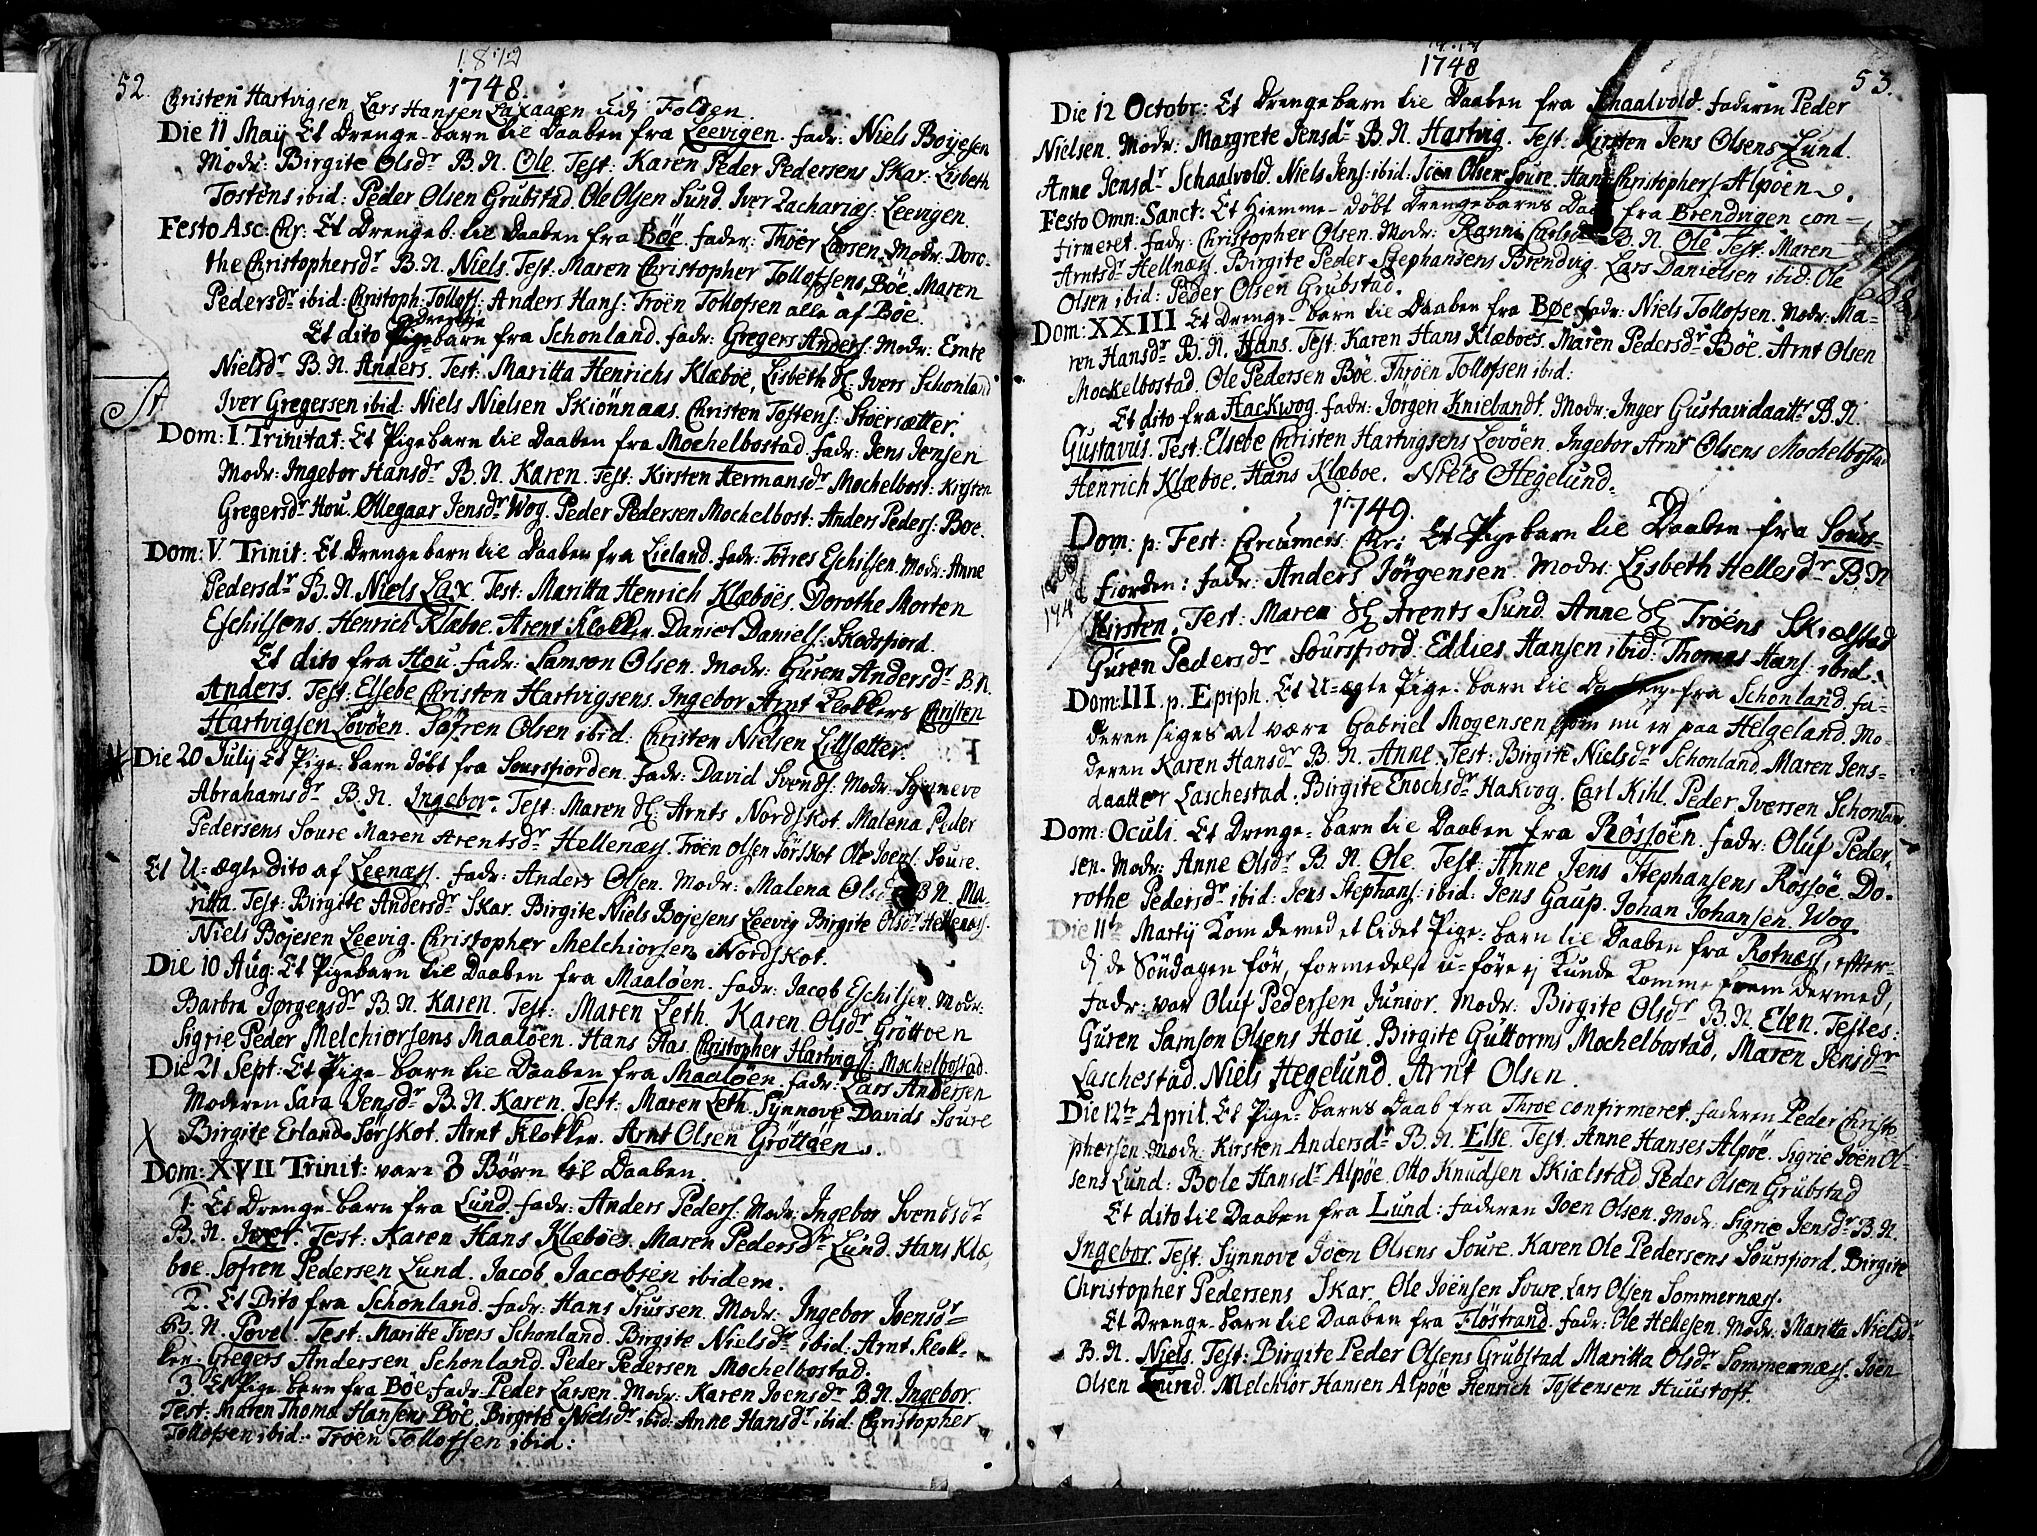 52.
1748.
Christen Hartvigsen Lars Hansen Laxaaen udj Folden.
Die 11 Maÿ Et Drenge-barn til Daaben fra Leevigen. fadr: Niels Boÿesen
Modr: Birgite Olsdr B.N. Ole. Test: Karen Peder Pedersens Skar. Lisbeth
Tostens ibid: Peder Olsen Grubstad. Ole Olsen Sund. Iver Zacharias: Leevigen.
Festo Asc: Chr: Et Drengeb: til Daaben fra Böe. fader: Thöer Larsen. Modr: Doro-
the Christophersdr B.N. Niels. Test: Maren Christopher Tollofsens Böe. Maren
Pedersdr ibid: Christoph: Tollofs: Anders Hans: Troën Tollofsen alle af Böe.
drenge
Et dito Pigebarn fra Schonland. fadr: Gregers Anders: Modr: Emte
Nielsdr B.N. Anders. Test: Maritta Henrichs Klæboe, Lisbeth Hr: Ivers Schonland
Iver Gregersen ibid: Niels Nielsen Skiönnaas. Christen Tostens: Stoersætter.
Dom: I. Trinitat: Et Pigebarn til Daaben fra Mochelbostad. fadr: Jens Jensen
Modr: Ingebor Hansdr B.N. Karen. Test: Kirsten Hermansdr Mochelbost: Kirsten
Gregersdr Hou. Ollegaar Jensdr Wog. Peder Pedersen Mochelbost: Anders Peders: Boe.
Dom: V. Trinit: Et Drengebarn til Daaben fra Lieland. fadr: Totres Eschilsen. Modr: Anne
Pedersdr B.N. Niels Lax. Test: Maritta Henrich Klæböes. Dorothe Morten
Eschilsens. Henrich Klæboe. Arent Klokker. Daniel Daniels: Skodsfiord.
Et dito fra Hou. fadr: Samson Olsen. Modr: Guren Andersdr B.N.
Anders. Test: Elsebe Christen Hartvigsens. Ingebor Arnt Klokkers Christen
Hartvigsen Lovöen. Sofren Olsen ibid: Christen Nielsen Lillsætter.
Die 20 July Et Pige-barn döbt fra Soursfiorden. fadr: David Svends: Modr: Synneve
Abrahamsdr B.N. Ingebor. Test: Maren Hr: Arnts Nordskot. Malena Peder
Pedersens Soure Maren Arentsdr Hellenæss. Tröen Olsen Sörskot Ole Joens: Soure.
Et U-ægte dito af Leenæss. fadr: Anders Olsen. Modr: Malena Ols B.N. Ma-
ritta. Test: Birgite Andersdr Skar. Birgite Niels Bojesens Leevig Birgite Olsdr Hellenæs.
Niels Bojesen Leevig. Christopher Melchiorsen Nordskot.
Die 10 Aug: Et Pigebarn til Daaben fra Maalöen. fadr: Jacob Eschilsen. Modr:
Barbra Jørgensdr B.N. Karen. Test: Maren Leth. Karen Olsdr Gröttöen
Sigrie Peder Melchiorsens Maalöen. Hans Has. Christopher Hartvigs: Mochelbostad.
Die 21 Sept: Et Pige-barn til Daaben fra Maalöen. fadr: Lars Andersen
Moderen Sara Jensdr B.N. Karen. Test: Maren Leth. Synnove Davids Soure
Birgite Erlands Sörskot. Arnt Klokker. Arnt Olsen Gröttöen.
Dom: XVII Trinit: vare 3 Börn til Daaben.
1. Et Drenge-barn fra Lund. fadr: Anders Peders: Modr: Ingebor Svendsdr
B.N. Iver. Test: Karen Hans Klæböes. Maren Pedersdr Lund. Hans Klæ-
boe. Sofren Pedersen Lund. Jacob Jacobsen ibidem.
2. Et Dito fra Schonland. fadr: Hans Siursen. Modr: Ingebor Joensdr
B.N. Povel. Test: Maritte Ivers Schonland. Birgite Nielsdr ibid: Arnt Klok-
ker. Gregers Andersen Schonland. Peder Pedersen Mochelbostad.
3. Et Pige-barn fra Böe. fadr: Peder Larsen. Modr: Karen Joensdr B.N. Ingebor.
Test: Maren Thoma Hansens Böe. Birgite Nielsdr ibid: Anne Hansdr ibid: Christopher
Tollofsen ibid: Troën Tollofsen ibid:
53.
1748
Die 12 Octobr: Et Drengebarn til Daaben fra Schaalvold. faderen Peder
Nielsen. Modr: Margrete Jensdr B.N. Hartvig. Test: Kirsten Jens Olsens Lund.
Anne Jensdr Schaalvold. Niels Jens: ibid: Joen Olsen Soure. Hans Christophers: Alpöen.
Festo Omn: Sanct: Et Hiemme-döbt Drengebarns Daab fra Brendvigen con-
firmeret. fadr: Christopher Olsen. Modr: Ranni B.N. Ole Test: Maren
Arntsdr Hellnæss. Birgite Peder Stephansens Brendvig. Lars Danielsen ibid: Ole
Olsen ibid: Peder Olsen Grubstad.
Dom: XXIII Et Drenge-barn til Daaben fra Bøe. fadr: Niels Tollofsen. Modr: Ma-
ren Hansdr B.N. Hans. Test: Karen Hans Klæboes. Maren Pedersdr Böe. Arnt Olsen
Mockelbostad. Ole Pedersen Böe. Thröen Tollofsen ibid:
Et dito fra Hackwog. fadr: Jörgen Knielandt. Modr: Inger Gustavidaattr B.N.
Gustavus. Test: Elsebe Christen Hartvigsens Lovöen. Ingebor Arnt Olsens Mochelbostad
Henrich Klæboe. Hans Klæboe. Niels Hegelund.
1749.
Dom. p. Fest: Circumcis. Chr: Et Pigebarn til Daaben fra Sours-
fiorden: fadr: Anders Jörgensen. Modr: Lisbeth Hellesdr B.N.
Kirsten. Test: Maren Hr Arents Sund. Anne Hr Tröens Skielstad
Guren Pedersdr Soursfiord. Eddies Hansen ibid: Thomas Hans: ibid.
Dom: III. p. Epiph. Et U-ægte Pige-barn til Daaben fra Schonland. fa-
deren siges at være Gabriel Mogensen som nu er paa Helgeland. Mo-
deren Karen Hansdr B.N. Anne. Test: Birgite Nielsdr Schonland Maren Jens-
daatter Laschestad. Birgite Enochsdr Hakvog. Carl Kihl. Peder Iversen Schonlan
Dom: Oculi. Et Drenge-barn til Daaben fra Rössöen. fadr: Oluf Peder-
sen. Modr: Anne Olsdr B.N. Ole. Test: Anne Jens Stephansens Rössöe. Do-
rothe Pedersdr ibid: Jens Stephans: ibid: Jens Gaup. Johan Johansen. Wog.
Die 11te Martij Kom de med et lidet Pige-barn til Daaben fra Rotnæss, efter-
dj de Söndagen för, formedelst u-före ej kunde komme frem dermed,
fadr: var Oluf Pedersen Junior. Modr: Birgite Olsdr B.N. Elen. Testes:
Guren Samson Olsens Hou. Birgite Guttorms Mochelbostad, Maren Jensdr
Laschestad. Niels Hegelund. Arnt Olsen.
Die 12te April. Et Pige-barns Daab fra Throe confirmeret. faderen Peder Christo-
phersen. Modr: Kirsten Andersdr B.N. Else. Test: Anne Hanses Alpöe. Sigrie Joen Ol-
sens Lund: Bole Hansdr Alpöe. Otto Knudsen Skielstad Peder Olsen Grubstad
Et dito til Daaben fra Lund: faderen Joen Olsen. Modr: Sigrie Jensdr B.N.
Ingebor. Test: Synnove Joen Olsens Soure. Karen Ole Pedersens Soursfiord. Birgite
Christopher Pedersens Skar. Ole Joensen Soure. Lars Olsen Sommernæss.
Et Drenge-barn til Daaben fra Flöstrand. fadr: Ole Hellesen. Modr: Maritta Nielsdr
B.N. Niels. Test: Birgite Peder Olsens Grubstad Maritta Olsdr Sommernæss. Joen
Olsen Lund. Melchior Hansen Alpöe Henrich Tostensen Huustoft.